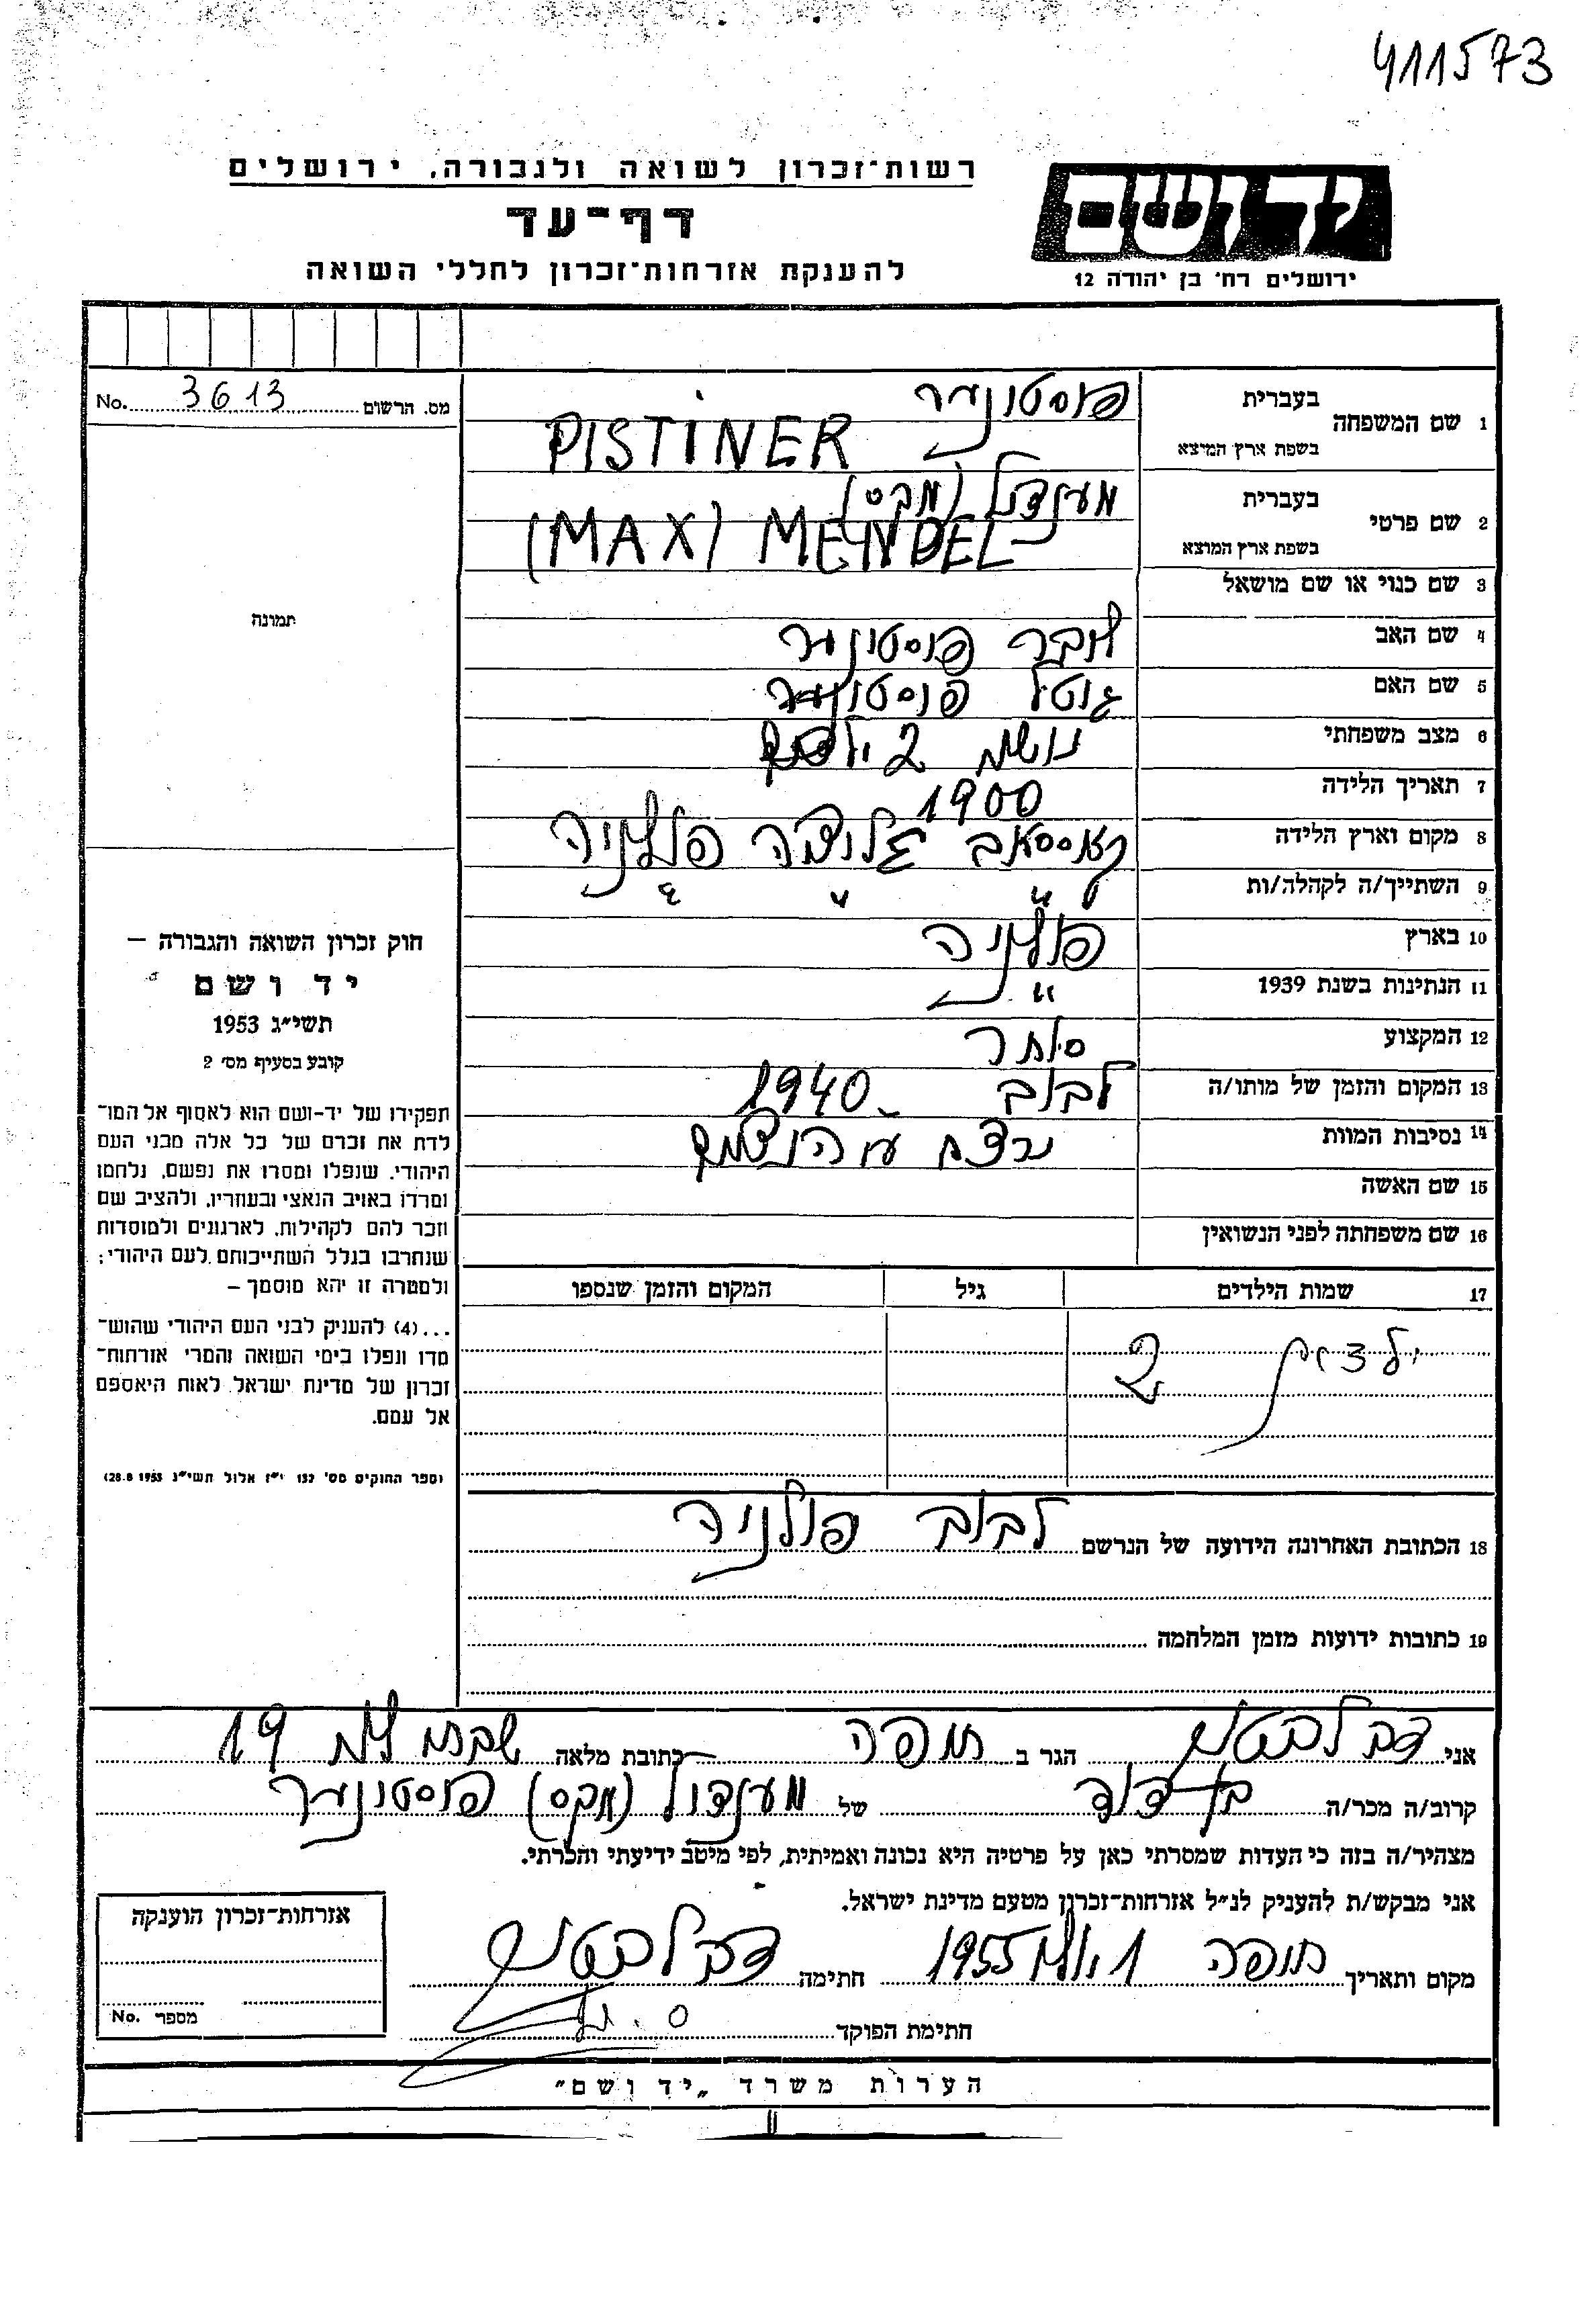 411573
רשות־זכרון לשואה ולגבורה, ירושלים
דף־עד
להענקת אזרחות־זכרון לחללי השואה
יד ושם
ירושלים רח' בן יהודה 12
No. 3613 מס. הרשום
תמונה
1 שם המשפחה בעברית פיסטינער
בשפת ארץ המוצא PISTINER
2 שם פרטי בעברית מענדיל (מקס)
בשפת ארץ המוצא (MAX) MENDEL
3 שם כנוי או שם מושאל
4 שם האב פיסטינער
5 שם האם גיטל פיסטינער
6 מצב משפחתי נשוי 2 ילדים
7 תאריך הלידה 1900
8 מקום וארץ הלידה פולניה
9 השתייך/ה לקהלה/ות " " "
10 בארץ פולניה
11 הנתינות בשנת 1939 "
12 המקצוע סוחר
13 המקום והזמן של מותו/ה לבוב 1940
14 נסיבות המוות
15 שם האשה
16 שם משפחתה לפני הנשואין
17 שמות הילדים גיל המקום והזמן שנספו
ילדים 2
18 הכתובת האחרונה הידועה של הנרשם לבוב פולניה
19 כתובות ידועות מזמן המלחמה
חוק זכרון השואה והגבורה –
יד ושם
תשי״ג 1953
קובע בסעיף מס' 2
תפקידו של יד-ושם הוא לאסוף אל המו־
לדת את זכרם של כל אלה מבני העם
היהודי, שנפלו ומסרו את נפשם, נלחמו
ומרדו באויב הנאצי ובעוזריו, ולהציב שם
וזכר להם לקהילות, לארגונים ולמוסדות
שנחרבו בגלל השתייכותם לעם היהודי;
ולמטרה זו יהא מוסמך –
...(4) להעניק לבני העם היהודי שהוש־
מדו ונפלו בימי השואה והמרי אזרחות־
זכרון של מדינת ישראל לאות היאספם
אל עמם.
(ספר החוקים מס' 132 י״ז אלול תשי״ג 28.8.1953)
אני דב הגר ב חיפה כתובת מלאה 19
קרוב/ה מכר/ה בן דוד של מענדיל (מקס) פיסטינער
מצהיר/ה בזה כי העדות שמסרתי כאן על פרטיה היא נכונה ואמיתית, לפי מיטב ידיעתי והכרתי.
אני מבקש/ת להעניק לנ״ל אזרחות־זכרון מטעם מדינת ישראל.
מקום ותאריך חיפה 1 1955 חתימה דב
חתימת הפוקד
אזרחות־זכרון הוענקה
מספר No.
הערות משרד „יד ושם"